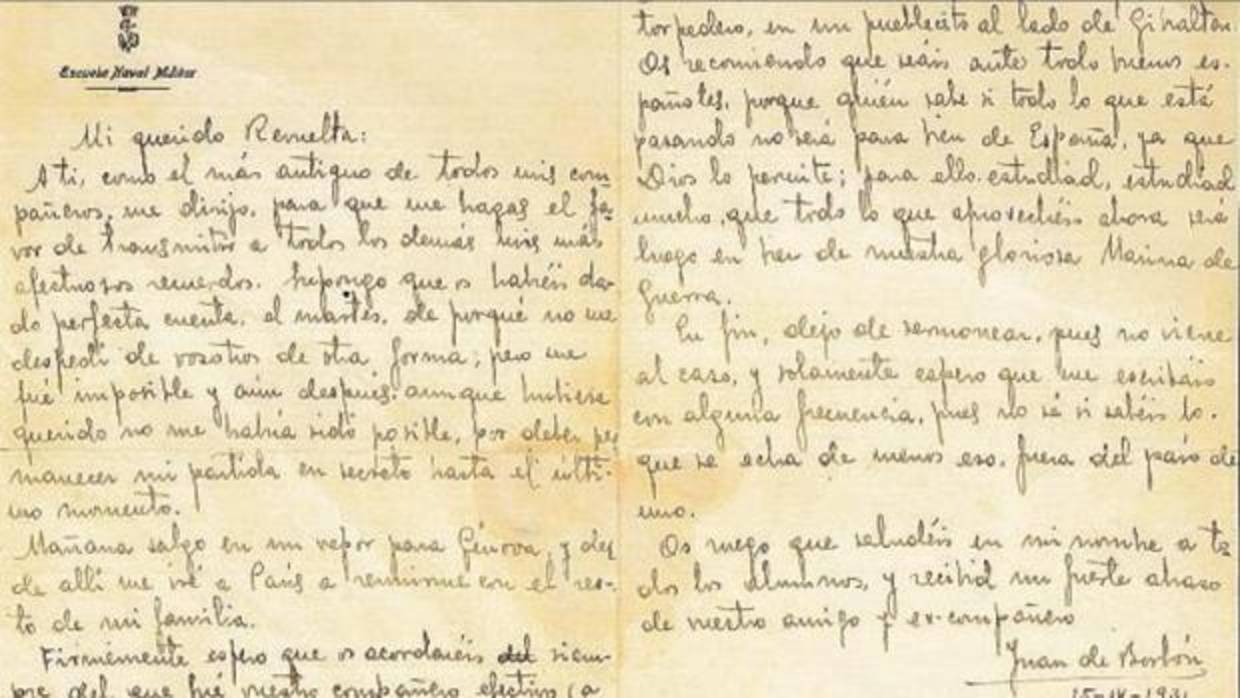 Escuela Naval Militar
Mi querido Revuelta:
A ti, como el más antiguo de todos mis com
pañeros, me dirijo, para que me hagas el fa-
vor de transmitir a todos los demás mis más
afectuosos recuerdos. Supongo que os habéis da-
do perfecta cuenta, el martes, de porqué no me
despedí de vosotros de otra forma; pero me
fué imposible y aún después, aunque hubiese
querido no me habría sido posible, por deber per
manecer mi partida en secreto hasta el últi-
mo momento.
Mañana salgo en un vapor para Génova, y des
de allí me iré a París a reunirme con el res-
to de mi familia.
Firmemente espero que os acordaréis del siem-
pre del que fué vuestro compañero efectivo (a
torpedero, en un pueblecito al lado de Gibraltar.
Os recomiendo que seáis ante todo buenos es-
pañoles, porque quién sabe si todo lo que está
pasando no será para bien de España, ya que
Dios lo permite; para ello estudiad, estudiad
mucho, que todo lo que aprovechéis ahora será
luego en bien de nuestra gloriosa Marina de
Guerra.
En fin, dejo de sermonear, pues no viene
al caso, y solamente espero que me escribáis
con alguna frecuencia, pues no sé si sabéis lo
que se echa de menos eso, fuera del país de
uno.
Os ruego que saludéis en mi nombre a to
dos los alumnos, y recibid un fuerte abrazo
de vuestro amigo y ex-compañero
Juan de Borbón